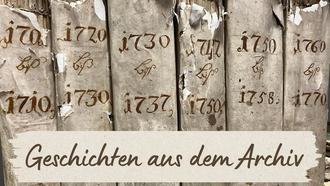 170
1710.
1720
1730
1730
1737.
1747
1750.
1750
1758.
1760
1770
Geschichten aus dem Archiv